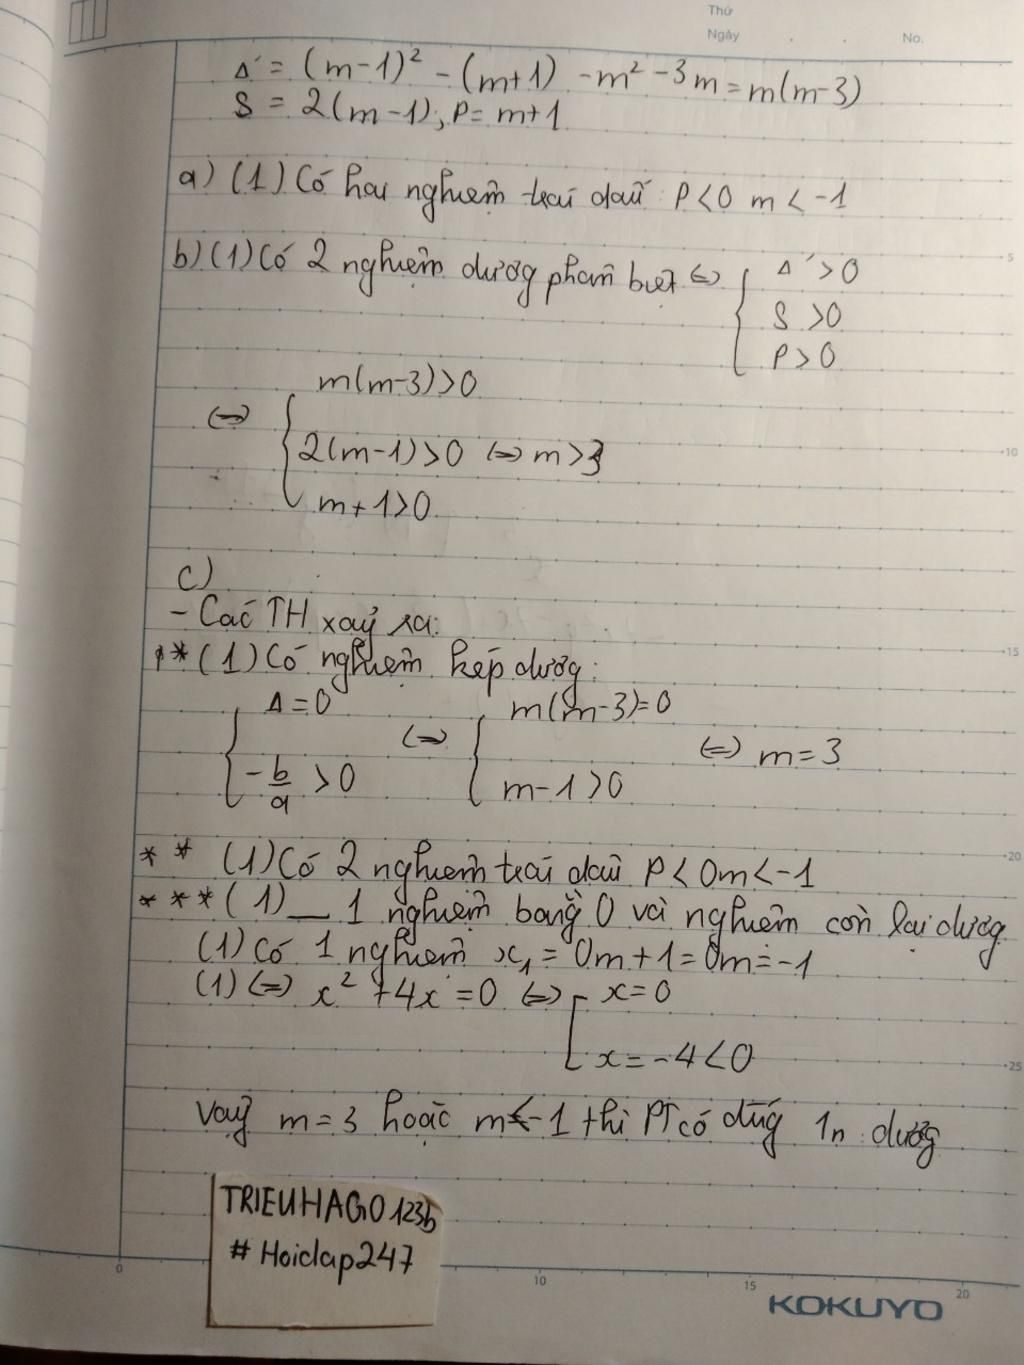 Thứ
Ngày . . No.
Δ' = (m-1)² - (m+1) - m² - 3m = m(m-3)
S = 2(m-1); P = m+1
a) (1) Có hai nghiệm trái dấu P<0 m<-1
b) (1) Có 2 nghiệm dương phân biệt ⇔ { Δ' >0
S >0
P >0
m(m-3)>0
⇔ { 2(m-1)>0 ⇔ m>3
m+1>0
c)
- Các TH xảy ra:
** (1) Có nghiệm kép dương:
Δ=0 m(m-3)=0
{ ⇔ { ⇔ m=3
-b/a >0 m-1>0
** (1) Có 2 nghiệm trái dấu P<0m<-1
*** (1) _ 1 nghiệm bằng 0 và nghiệm còn lại dương
(1) Có 1 nghiệm x₁ = 0m+1=0m=-1
(1) ⇔ x² +4x =0 ⇔ [ x=0
x=-4<0
Vậy m=3 hoặc m<-1 thì PT có đúng 1n dương
TRIEUHAGO123b
# Hoidap247
5
10
15
20
25
0 10 15 20
KOKUYO